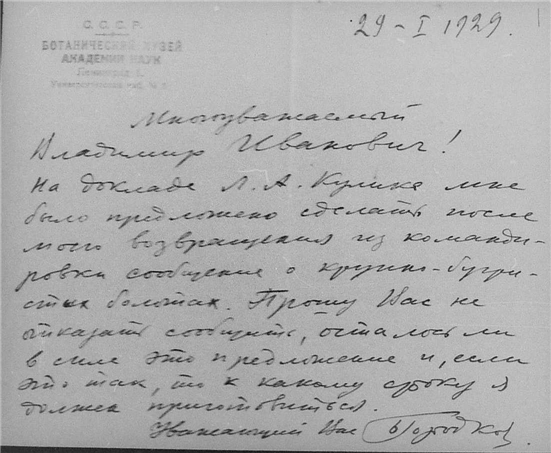 29-I 1929.
С. С. С. Р.
БОТАНИЧЕСКИЙ МУЗЕЙ
АКАДЕМИИ НАУК
Ленинград 1.
Университетская наб. №
Многоуважаемый
Владимир Иванович!
На докладе Л. А. Кулика мне
было предложено сделать после
моего возвращения из команди-
ровки сообщение о крупно-бугри-
стых болотах. Прошу Вас не
отказать сообщить, осталось ли
в силе это предложение и, если
это так, то к какому сроку я
должен приготовиться.
Уважающий Вас БГородков